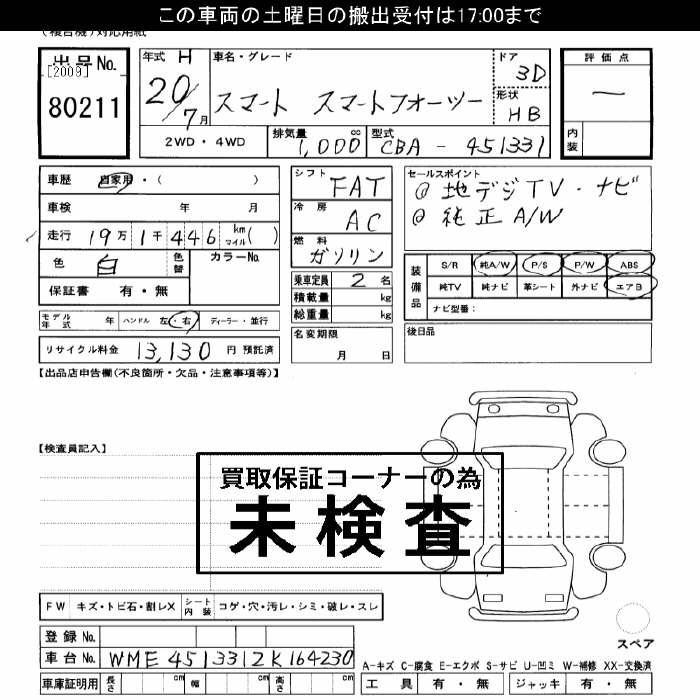 この車両の土曜日の搬出受付は17:00まで
(複合機)対応用紙
出品No.
[2009]
80211
年式 H 20/7月
車名・グレード
スマート スマートフォーツー
ドア 3D
形状 HB
評価点
ー
内装
2WD・4WD
排気量 1,000 cc
型式 CBA - 451331
車歴 自家用・( )
車検 年 月
走行 19万1千446 km マイル( )
色 白 色替 カラーNo.
保証書 有・無
モデル年式 年 ハンドル 左・右 ディーラー・並行
リサイクル料金 13,130 円 預託済
シフト FAT
冷房 AC
燃料 ガソリン
乗車定員 2 名
積載量 kg
総重量 kg
名変期限
月 日
セールスポイント
@ 地デジTV・ナビ
@ 純正A/W
装備品
S/R 純A/W P/S P/W ABS
純TV 純ナビ 革シート 外ナビ エアB
ナビ型番:
後日品
【出品店申告欄(不良箇所・欠品・注意事項等)】
【検査員記入】
買取保証コーナーの為
未検査
FW キズ・トビ石・割レX シート内装 コゲ・穴・汚レ・シミ・破レ・スレ
スペア
登録No.
車台No. WME4513312K164230
車庫証明用 長さ cm 幅 cm 高さ cm
A-キズ C-腐食 E-エクボ S-サビ U-凹ミ W-補修 XX-交換済
工具 有・無 ジャッキ 有・無